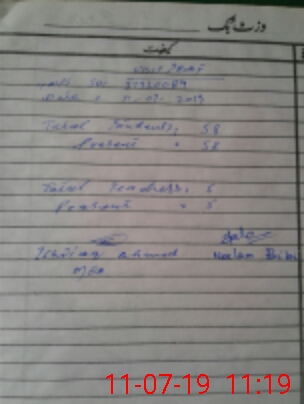 وزٹ بک
کیفیت
Visit
Date : 11.07.2019
Total Students, 58
Present " 58
Total Teachers, 5
Present " 5
Ahmad
Neelam Bibi
MEA
11-07-19 11:19